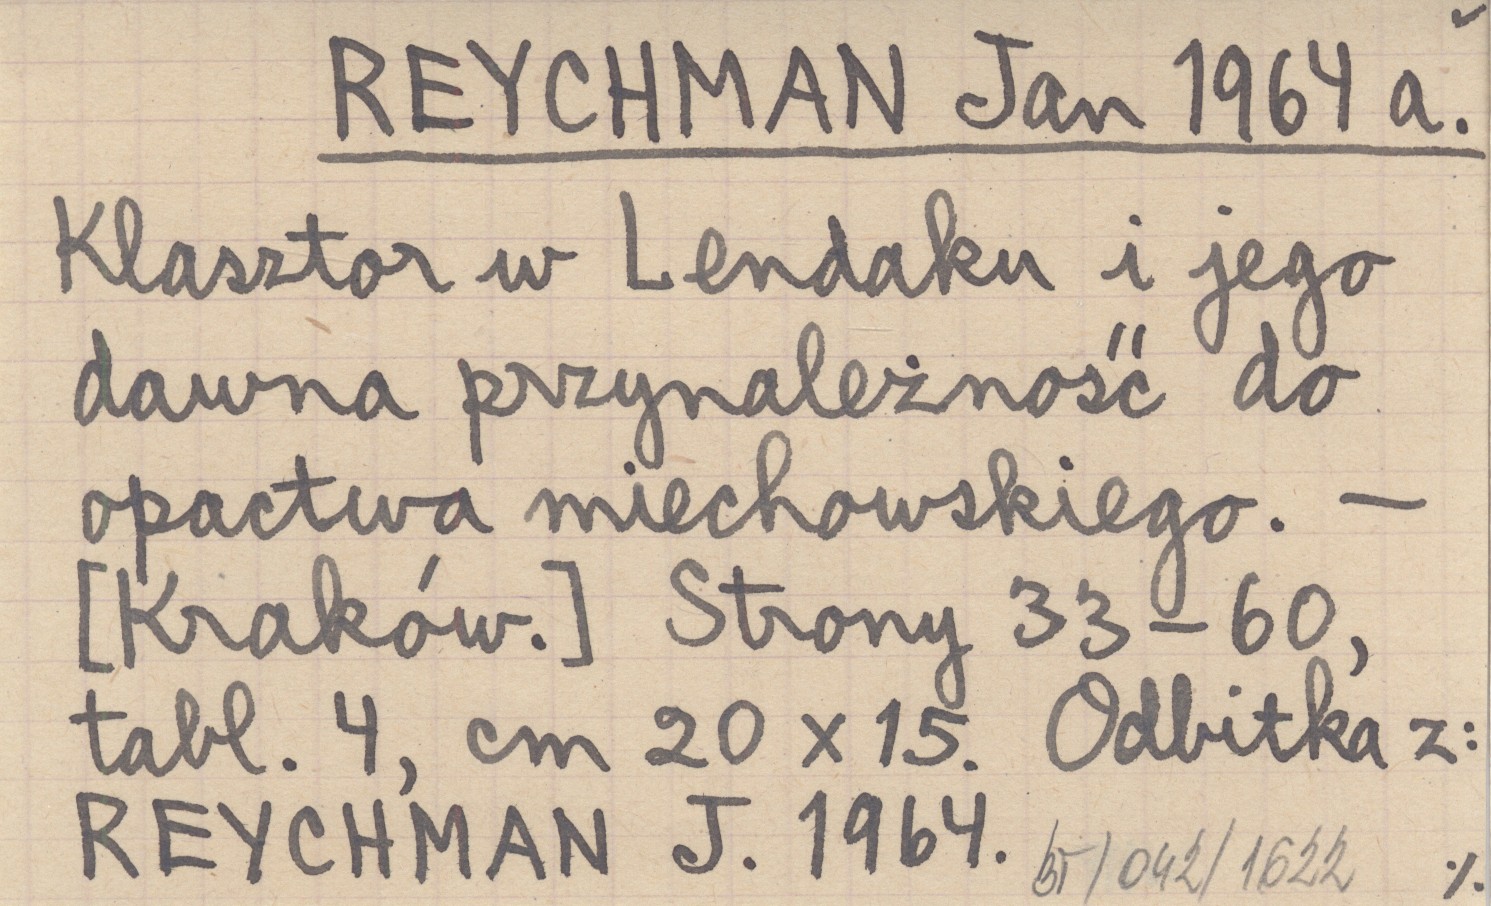 REYCHMAN Jan 1964 a.
Klasztor w Lendaku i jego
dawna przynależność do
opactwa miechowskiego. —
[Kraków.] Strony 33-60,
tabl. 4, cm 20 x 15. Odbitka z:
REYCHMAN J. 1964.
/042/1622 ·/.